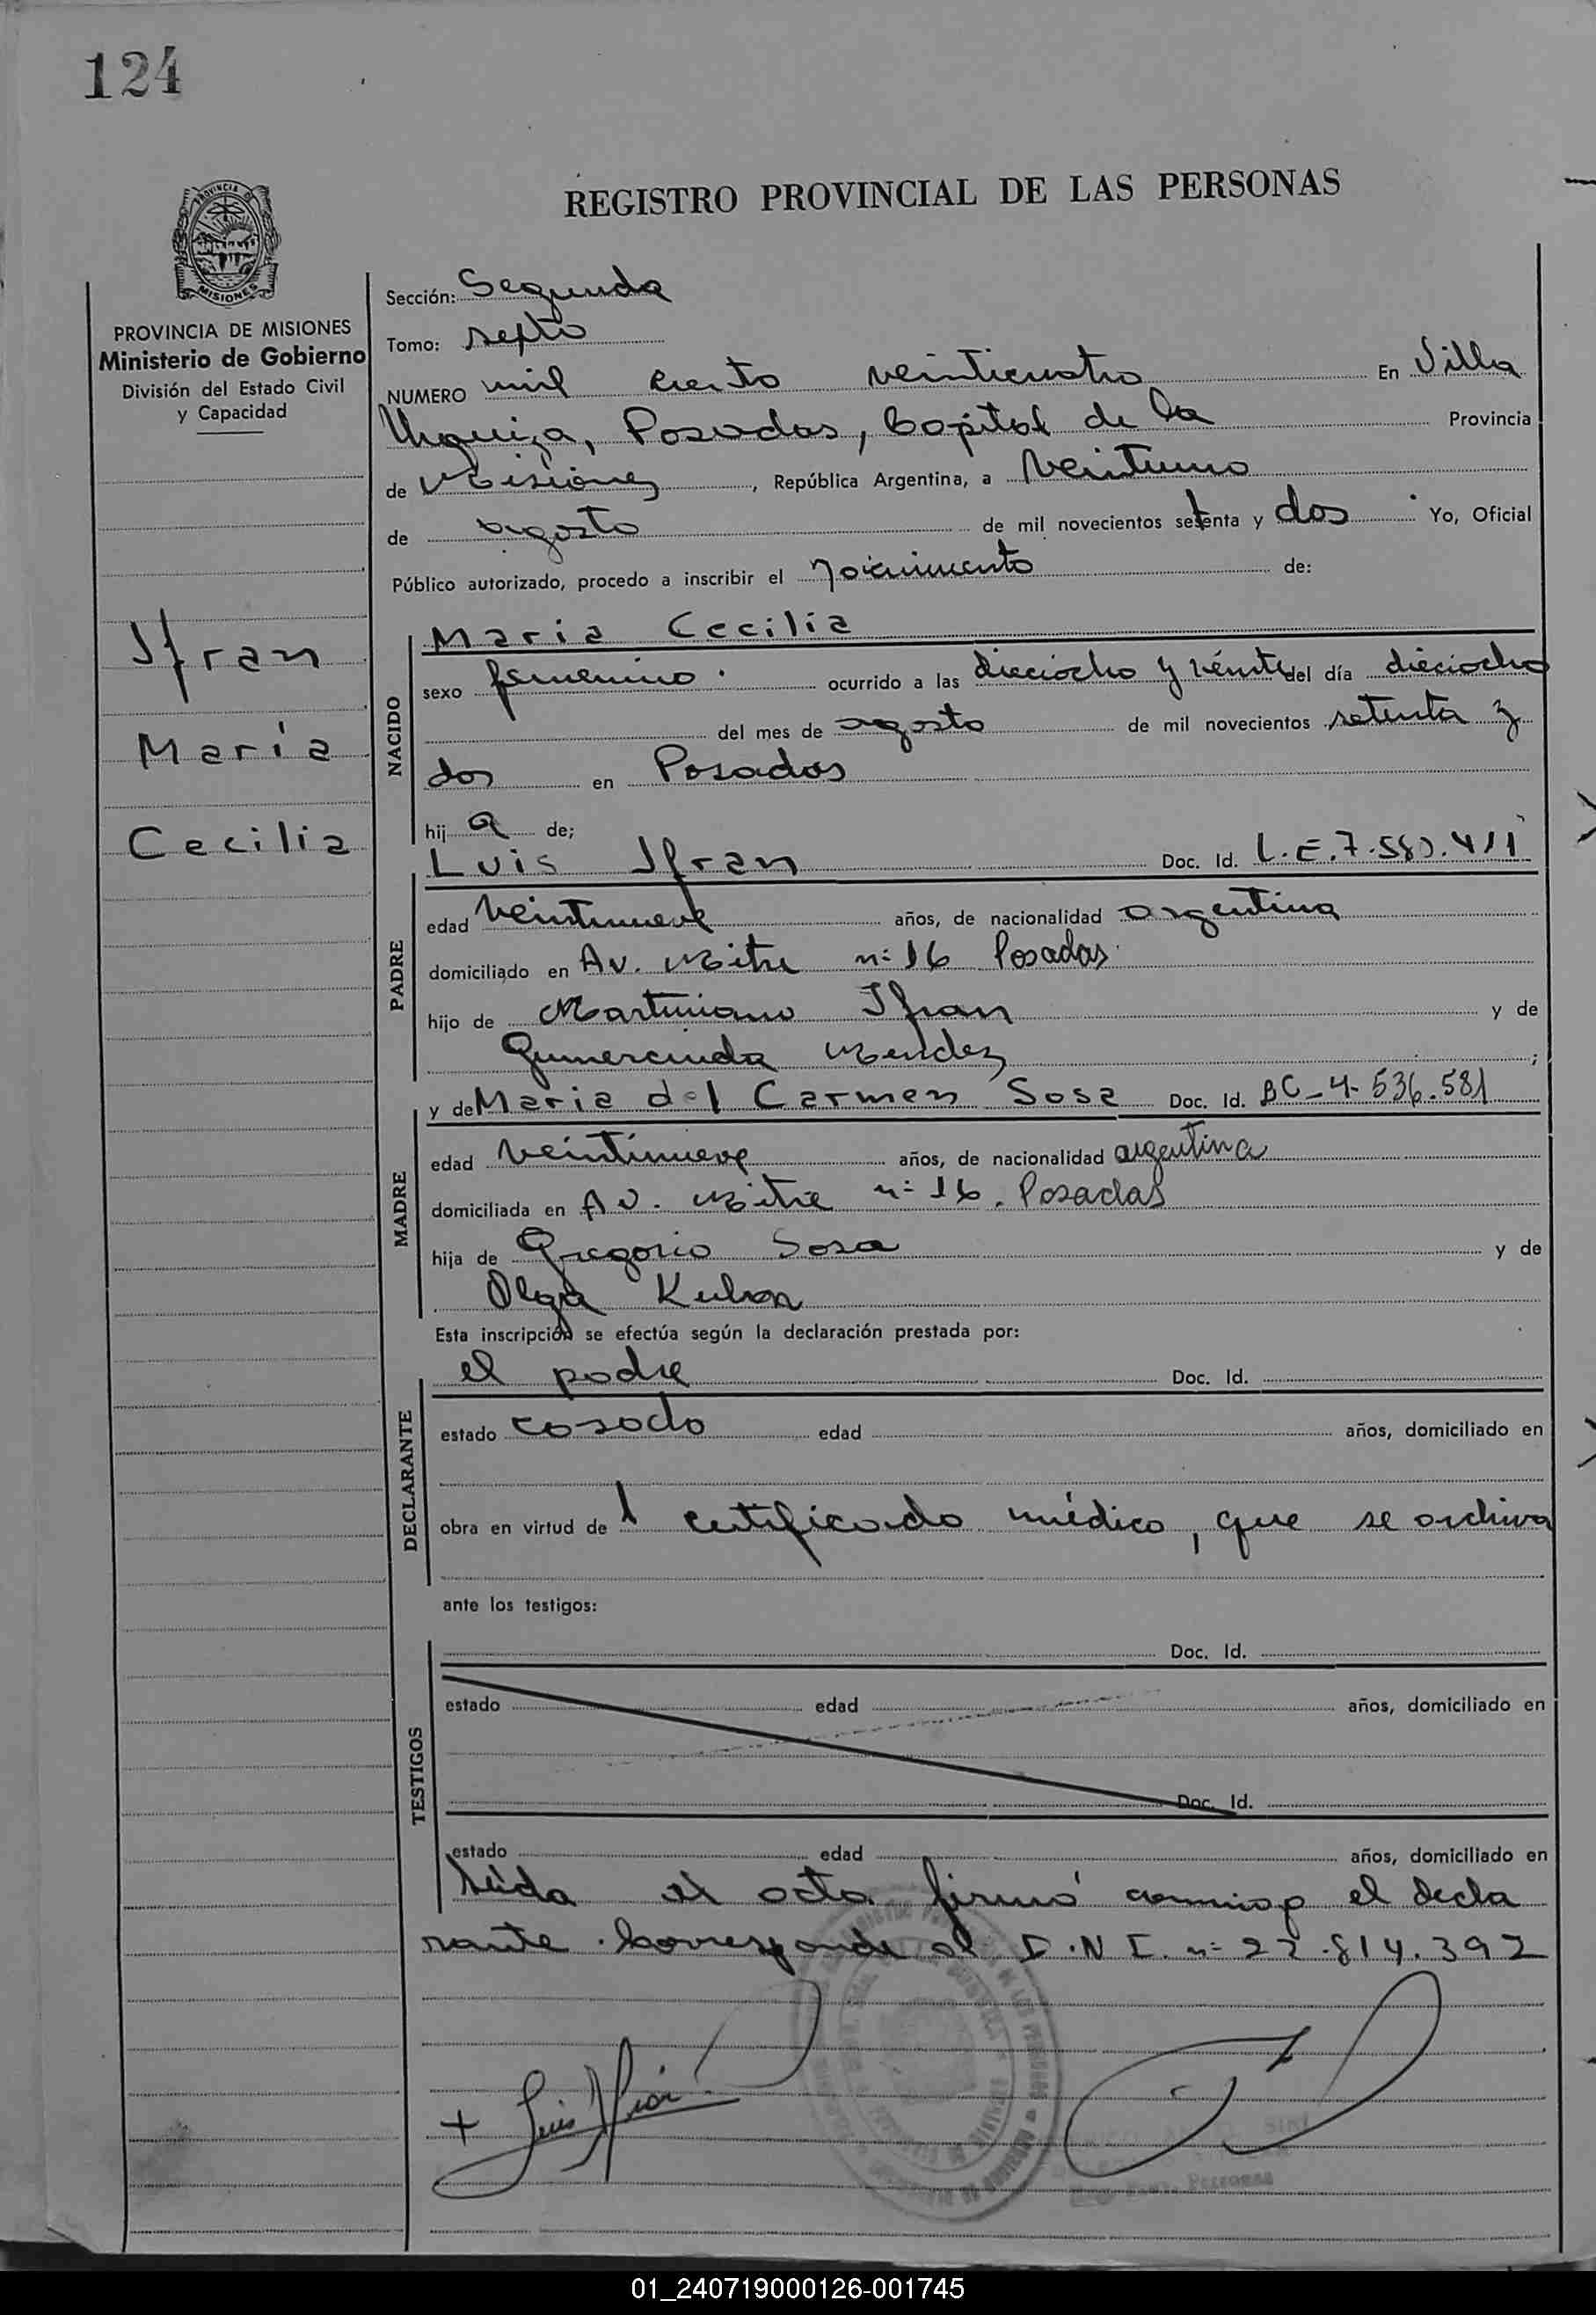 124
PROVINCIA DE
MISIONES
REGISTRO PROVINCIAL DE LAS PERSONAS
PROVINCIA DE MISIONES
Ministerio de Gobierno
División del Estado Civil
y Capacidad
Ifran
María
Cecilia
Sección: Segunda
Tomo: sexto
NUMERO mil ciento veinticuatro En Villa
Urquiza, Posadas, Capital de la Provincia
de Misiones, República Argentina, a veintiuno
de agosto de mil novecientos setenta y dos Yo, Oficial
Público autorizado, procedo a inscribir el nacimiento de:
NACIDO
Maria Cecilia
sexo femenino. ocurrido a las dieciocho y veinte del día dieciocho
del mes de agosto de mil novecientos setenta y
dos en Posadas
hij a de;
PADRE
Luis Ifran Doc. Id. L.E.7.580.411
edad veintinueve años, de nacionalidad argentina
domiciliado en Av. Mitre nº 16 Posadas
hijo de Martiniano Ifran y de
Gumercinda Mendez ;
MADRE
y de Maria del Carmen Sosa Doc. Id. BC-4.536.581
edad veintinueve años, de nacionalidad argentina
domiciliada en Av. Mitre nº 16. Posadas
hija de Gregorio Sosa y de
Olga
Esta inscripción se efectúa según la declaración prestada por:
DECLARANTE
el padre Doc. Id.
estado casado edad años, domiciliado en
obra en virtud de 1 certificado médico, que se archiva
ante los testigos:
TESTIGOS
Doc. Id.
estado edad años, domiciliado en
Doc. Id.
estado edad años, domiciliado en
Leída el acta firmó conmigo el decla
rante. Corresponde al D.N.I. nº 22.814.392
+ Luis Ifran
01_240719000126-001745